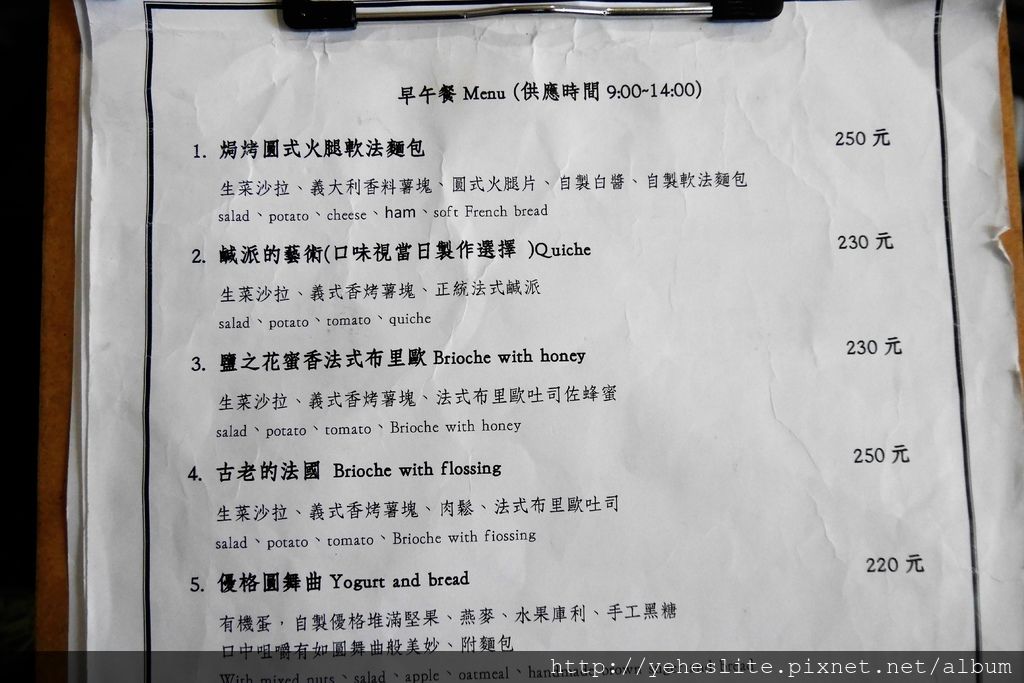 早午餐 Menu (供應時間 9:00~14:00)
1. 焗烤圓式火腿軟法麵包 250 元
生菜沙拉、義大利香料薯塊、圓式火腿片、自製白醬、自製軟法麵包
salad、potato、cheese、ham、soft French bread
2. 鹹派的藝術(口味視當日製作選擇 )Quiche 230 元
生菜沙拉、義式香烤薯塊、正統法式鹹派
salad、potato、tomato、quiche
3. 鹽之花蜜香法式布里歐 Brioche with honey 230 元
生菜沙拉、義式香烤薯塊、法式布里歐吐司佐蜂蜜
salad、potato、tomato、Brioche with honey
4. 古老的法國 Brioche with flossing 250 元
生菜沙拉、義式香烤薯塊、肉鬆、法式布里歐吐司
salad、potato、tomato、Brioche with fiossing
5. 優格圓舞曲 Yogurt and bread 220 元
有機蛋，自製優格堆滿堅果、燕麥、水果庫利、手工黑糖
口中咀嚼有如圓舞曲般美妙、附麵包
With mixed nuts、salad、apple、oatmeal、handmade brown
http://yeheslite.pixnet.net/album